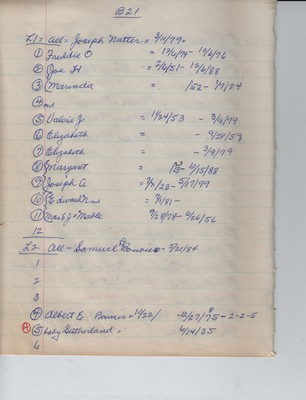 B21
L1 = all = Joseph Natter = 3/11/79
① Freddie O = 12/6/74 - 12/6/76
② Joe H = 2/6/51 - 12/6/88
③ Marinda - /52 - 1/7/84
④
⑤ Valerie J. = 11/24/53 - 3/9/99
⑥ Elizabeth = - 9/24/58
⑦ Elizabeth = - 3/9/79
⑧ Margaret = - 4/15/88
⑨ Joseph A. = 7/2/28 - 5/17/99
⑩ Edward = 7/1/81 -
⑪ Mrs E J = Mable 9/28/78 - 4/26/56
12
L2 - All - Samuel - 3/21/84
1
2
3
④ Albert E. = 10/22/ - 12/27/75 - 2-2-5
④ ⑤ baby Sutherland = 4/14/35
6